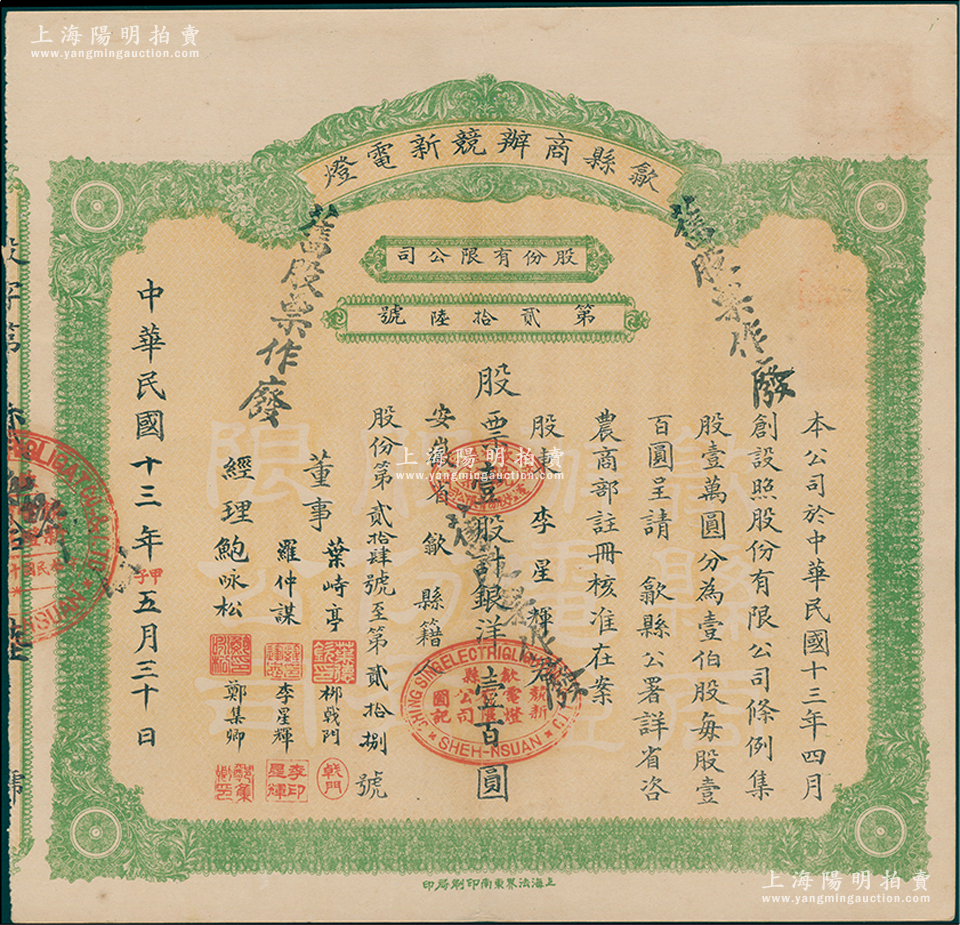 上海陽明拍賣
www.yangmingauction.com
歙縣商辦競新電燈
股份有限公司
第貳拾陸號
舊股票作廢
舊股票作廢
本公司於中華民國十三年四月
創設照股份有限公司條例集
股壹萬圓分為壹伯股每股壹
百圓呈請 歙縣公署詳省咨
農商部註冊核准在案
股東 李星輝君
股票壹股計銀洋壹百圓
安徽省歙縣籍
股份第貳拾肆號至第貳拾捌號
董事 葉峙亭 柳戟門
羅仲謀 李星輝
經理 鮑咏松 鄭集卿
中華民國十三年甲子五月三十日
競新
歙電燈
縣公司
圖記
SHEH-HSUAN
戟門
李星輝印
上海陽明拍賣
www.yangmingauction.com
上海法界東南印刷局印
上海陽明拍賣
www.yangmingauction.com